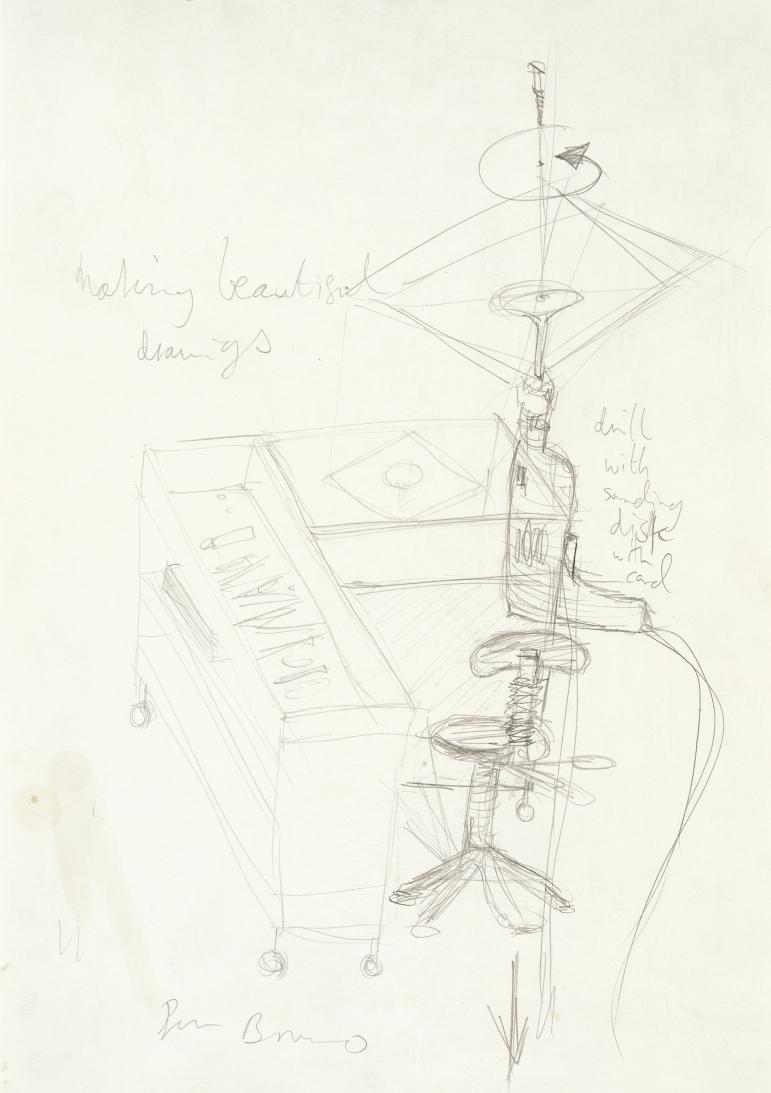 making beautiful
drawings
drill
with
sanding
disk
with
card
Bruno